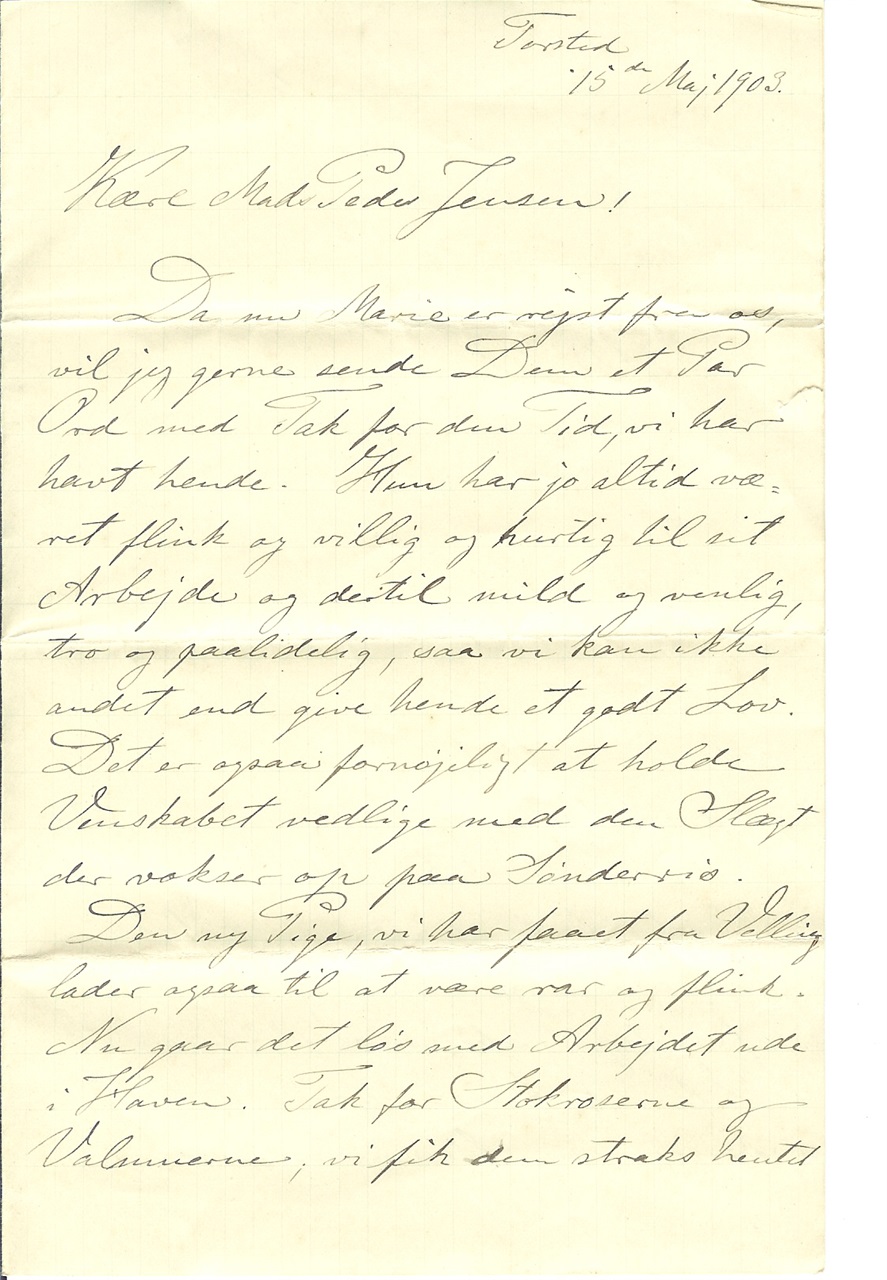 Torsted
15de Maj 1903.
Kære Mads Peder Jensen!
Da nu Marie er rejst fra os,
vil jeg gerne sende Dem et Par
Ord med Tak for den Tid, vi har
havt hende. Hun har jo altid væ=
ret flink og villig og hurtig til sit
Arbejde og dertil mild og venlig,
tro og paalidelig, saa vi kan ikke
andet end give hende et godt Lov.
Det er ogsaa fornøjeligt at holde
Venskabet vedlige med den Slægt
der vokser op paa Sønderris.
Den ny Pige, vi har faaet fra Velling
lader ogsaa til at være rar og flink.
Nu gaar det løs med Arbejdet ude
i Haven. Tak for Stokroserne og
Valmuerne, vi fik dem straks hentet